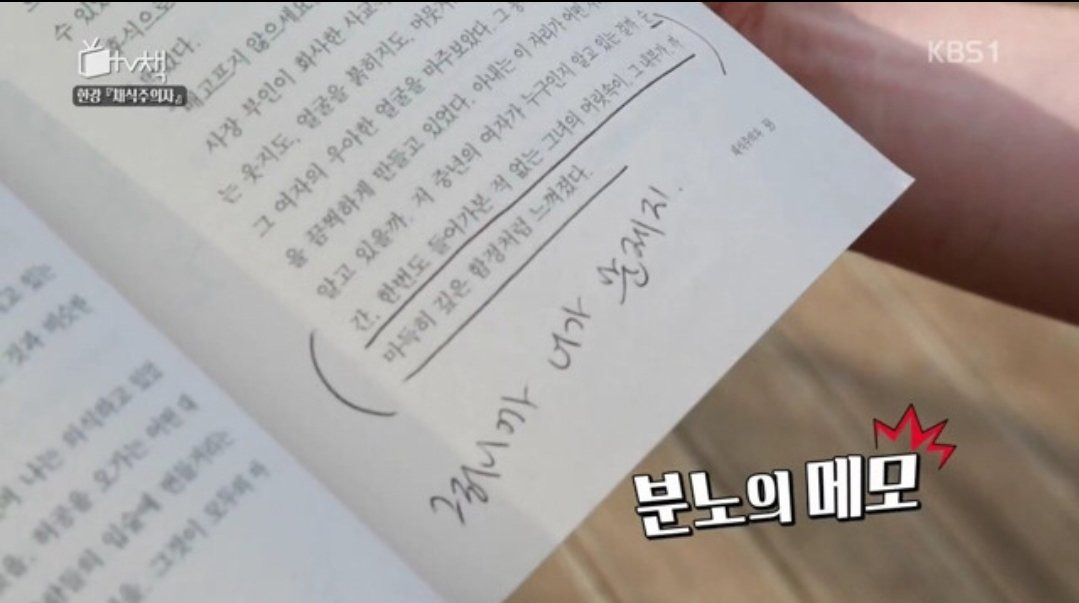 tv책
한강 『채식주의자』
KBS1
수 있
식으로
했다.
고프지 않으세요
사장 부인이 화사한 사교
는 웃지도, 얼굴을 붉히지도, 머뭇
그 여자의 우아한 얼굴을 마주보았다. 그
을 끔찍하게 만들고 있었다. 아내는 이 자리가 어떤
알고 있을까. 저 중년의 여자가 누구인지 알고 있는 걸까. 순
간, 한번도 들어가본 적 없는 그녀의 머릿속이, 그 내부가 까
마득히 깊은 함정처럼 느껴졌다.
그러니까 너가 문제지.
채식주의자
것과 비슷한
나는 의식하고 있었
허공을 오가는 어떤
입술에 번들거리는
그것이 모두의
분노의 메모